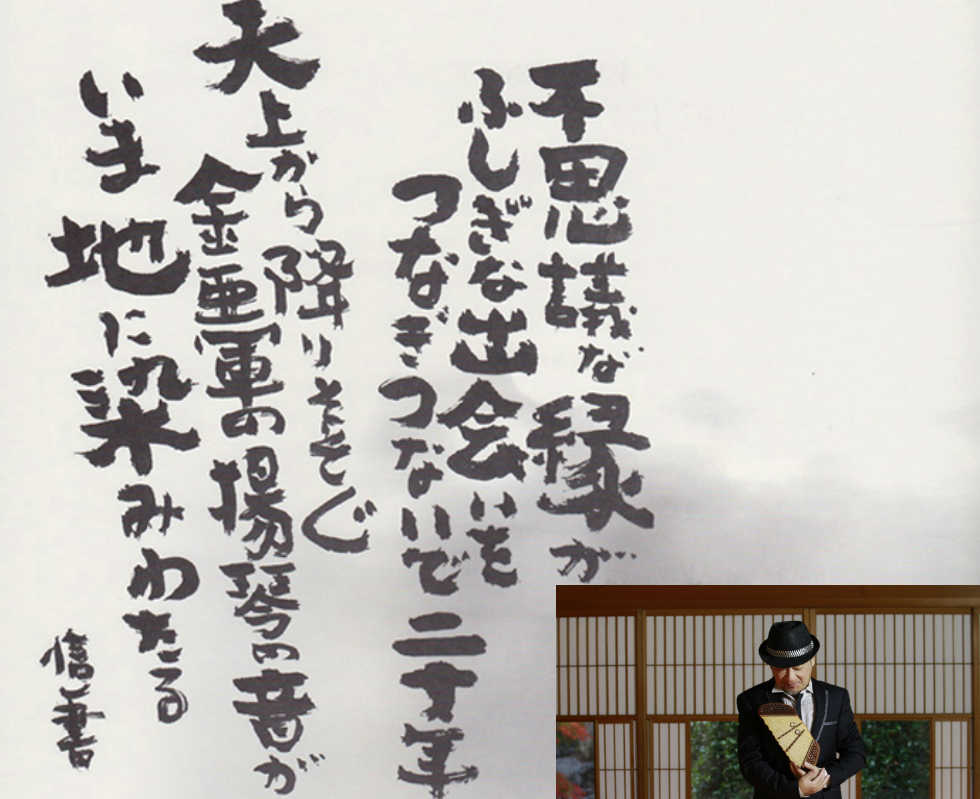 不思議な縁が
ふしぎな出会いを
つなぎつないで二十年
天上から降りそそぐ
金亜軍の揚琴の音が
いま地に染みわたる